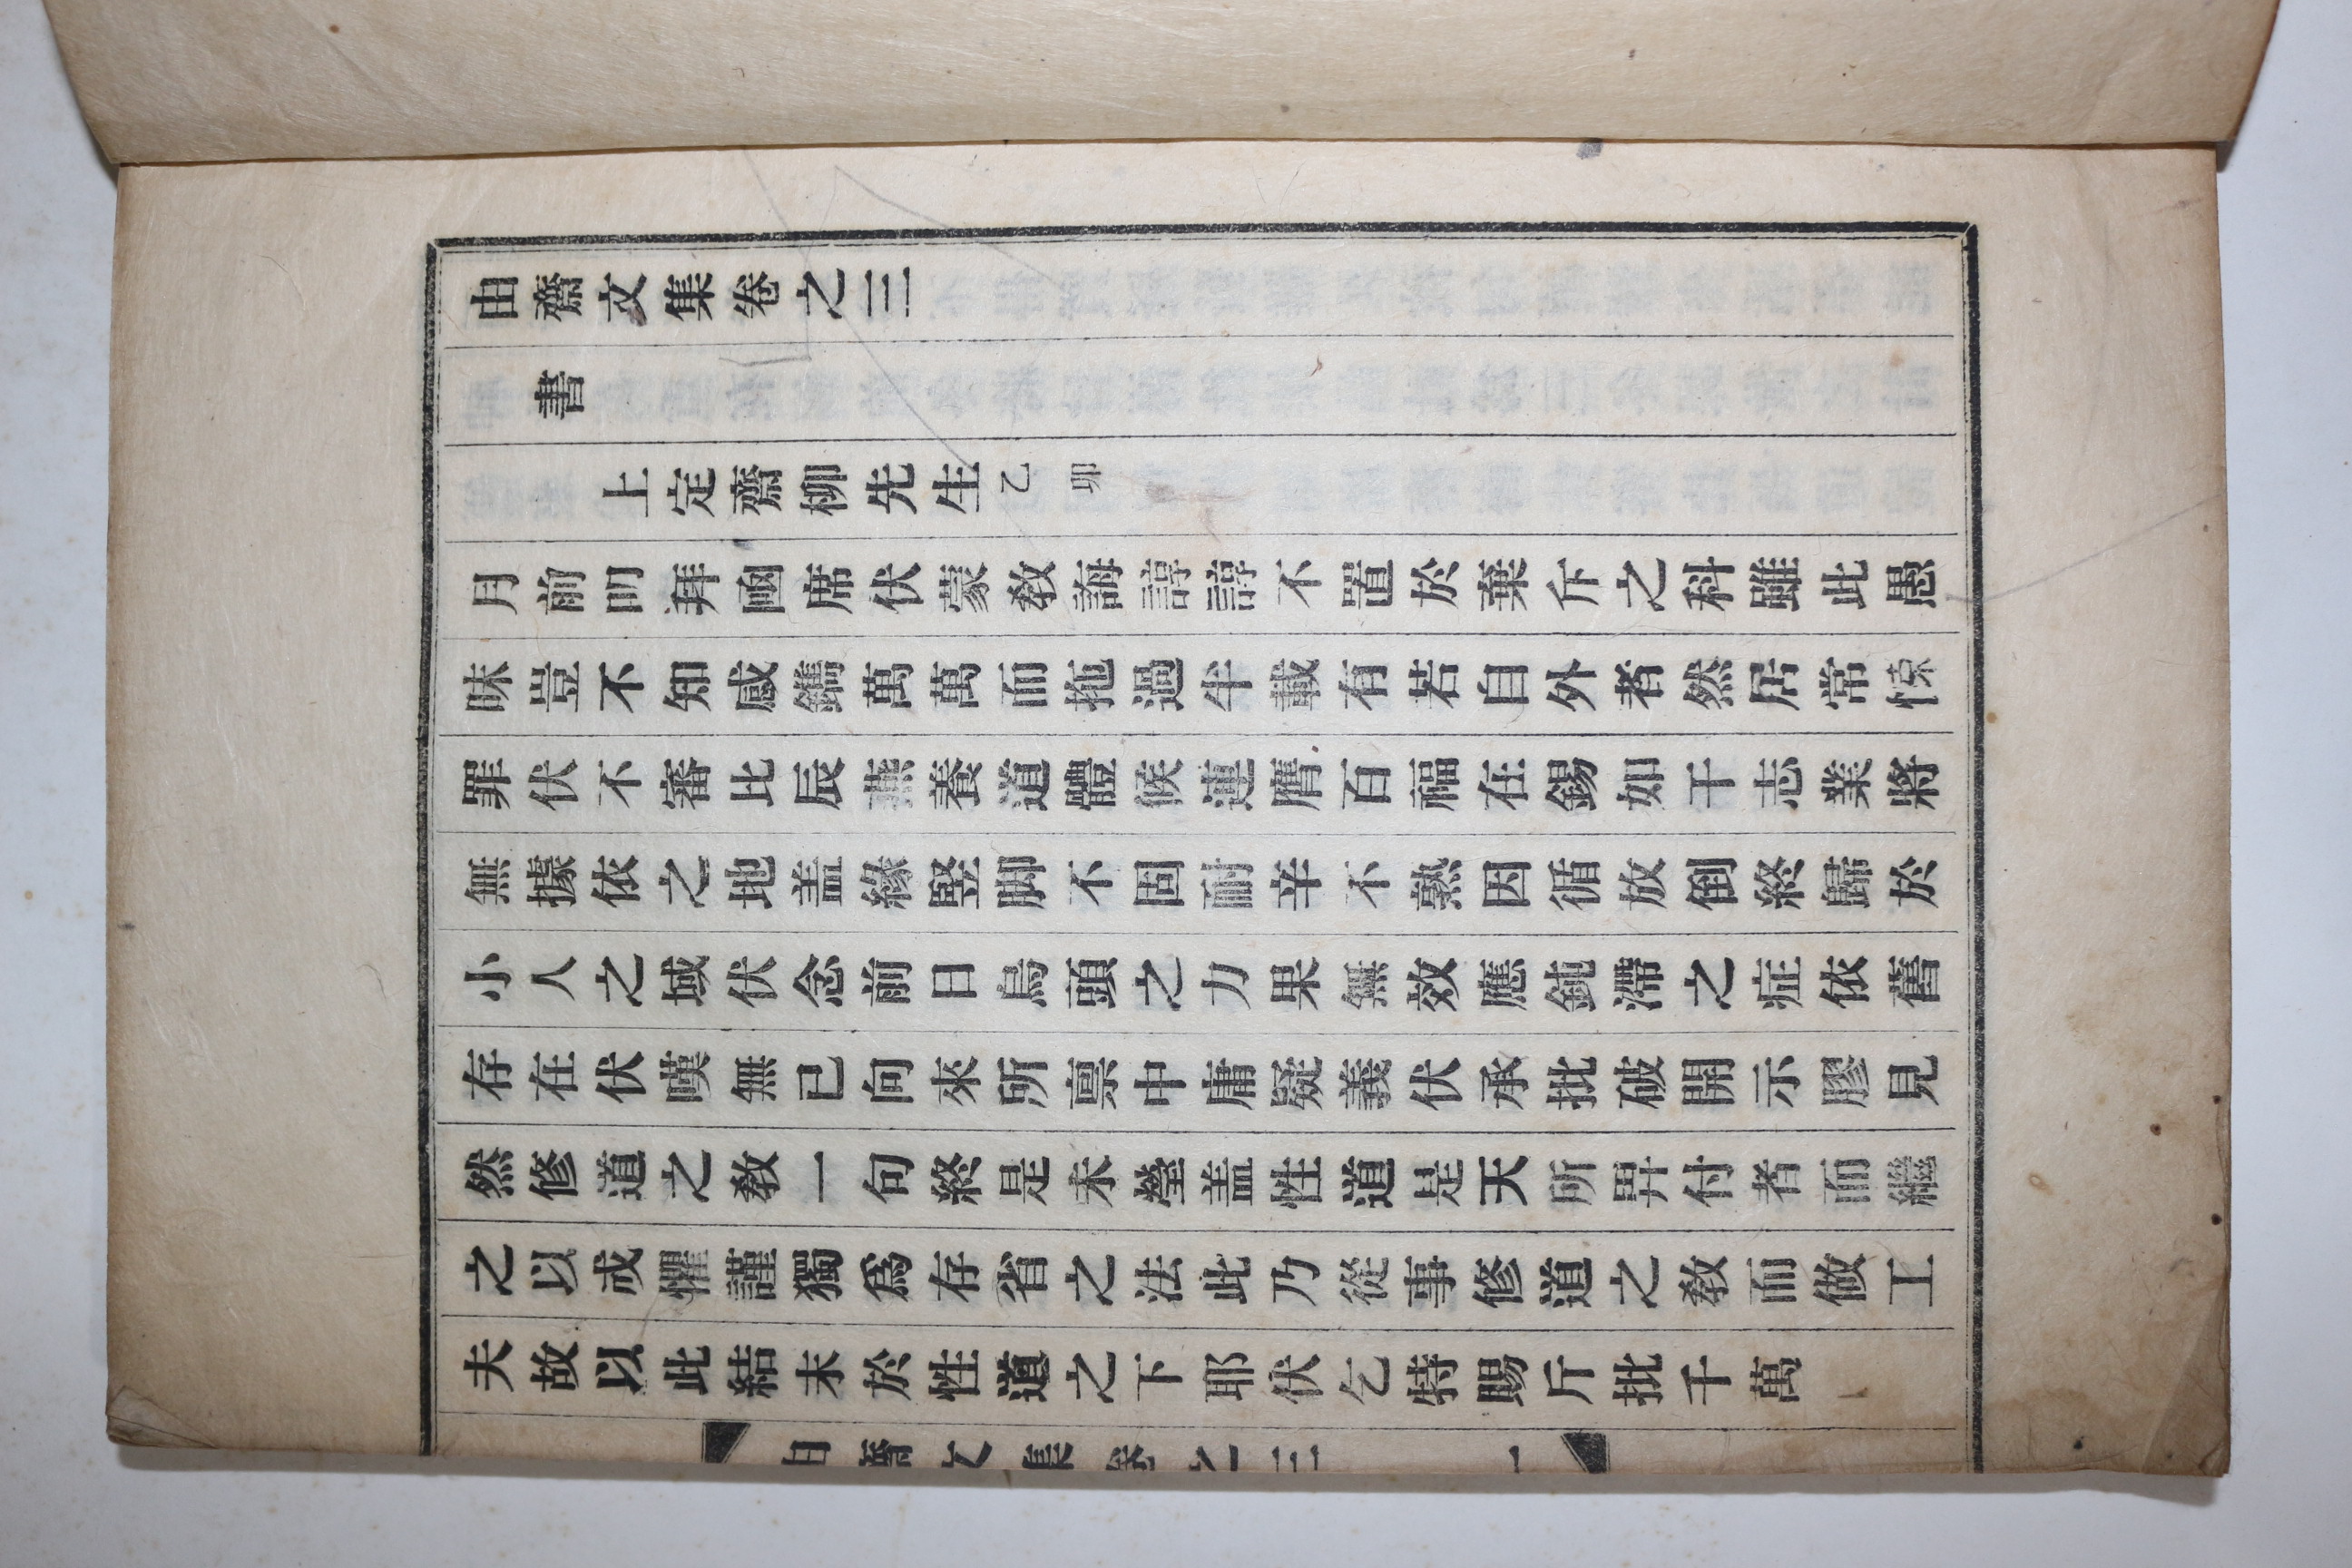 由齋文集卷之三
書
上定齋柳先生乙卯
月前叩拜凾席伏蒙敎誨諄諄不置於棄斥之科雖此愚
昧豈不知感鐫萬萬而拖過半載有若自外者然居常悚
罪伏不審比辰燕養道體候連膺百福在錫如干志業將
無據依之地盖緣竪脚不固耐辛不熟因循放倒終歸於
小人之域伏念前日烏頭之力果無效應鈍滯之症依舊
存在伏嘆無已向來所禀中庸疑義伏承批破開示膠見
然修道之敎一句終是未瑩盖性道是天所畀付者而繼
之以戒懼謹獨爲存省之法此乃從事修道之敎而做工
夫故以此結末於性道之下耶伏乞特賜斤批千萬
由齋文集卷之三 一